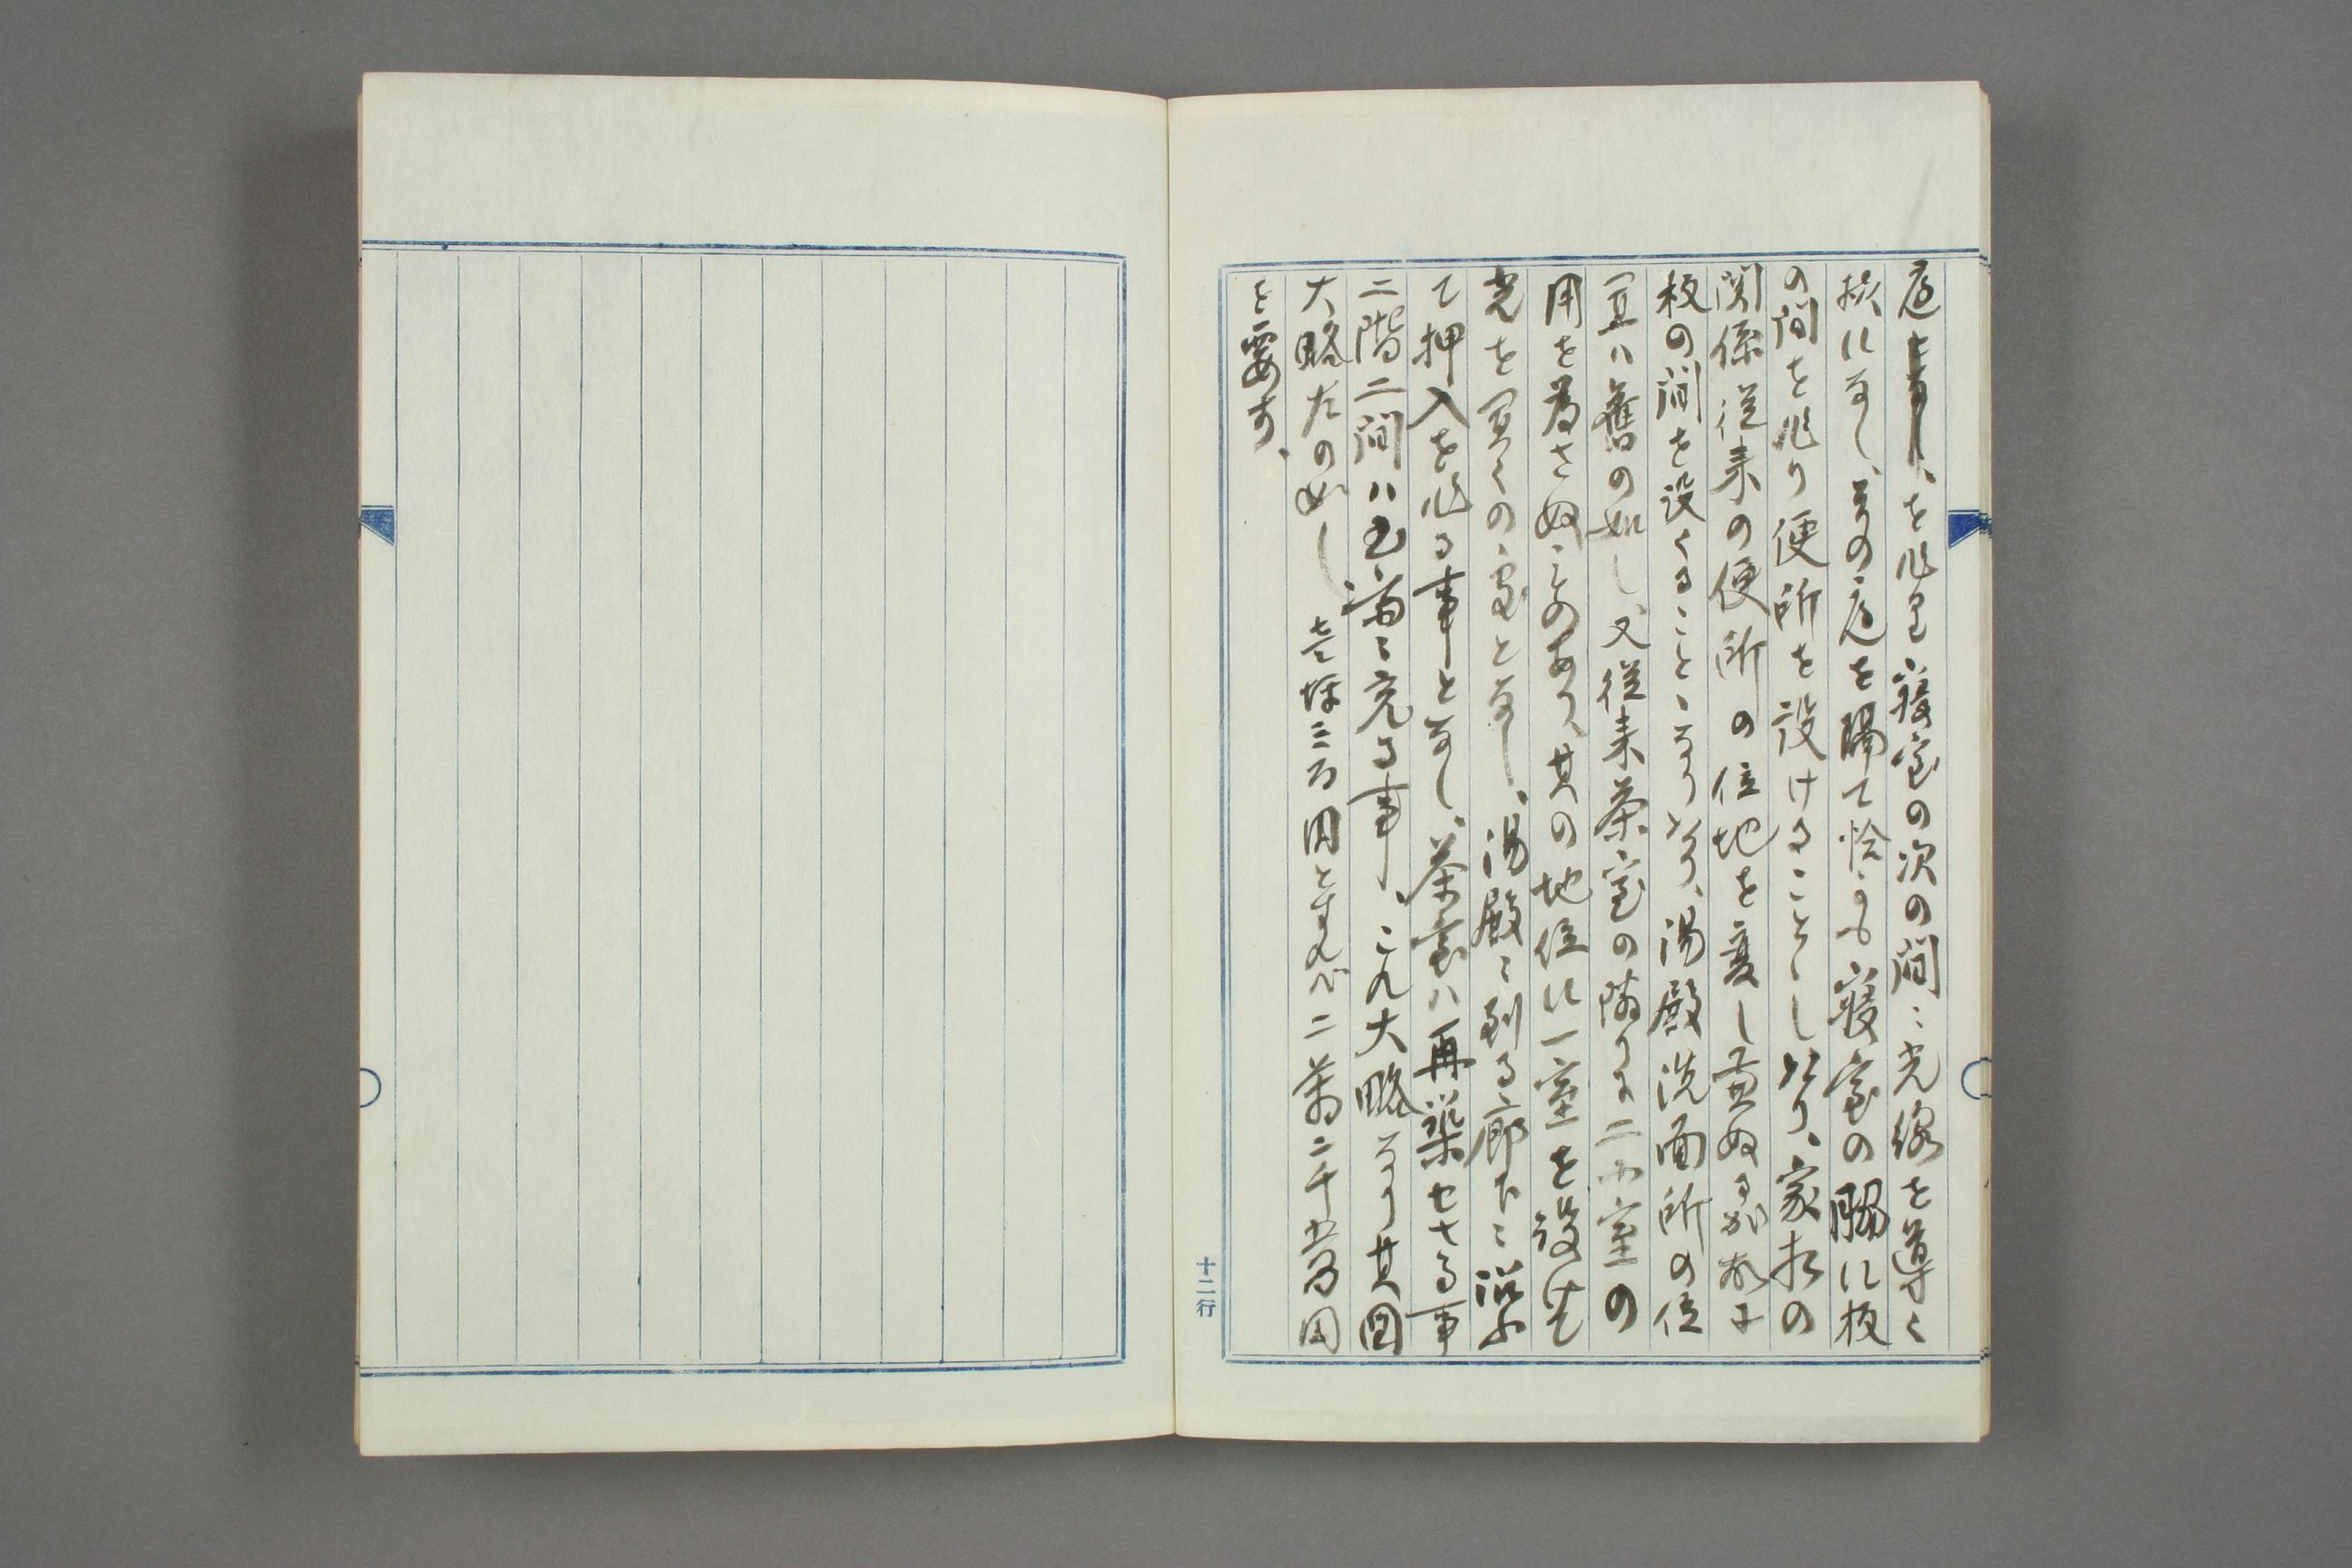 庭を作り寝室の次の間ニ光線を導く
様になし、其の庭を隔て恰かも寝室の脇に板
の間を作り便所を設けることゝし此り、家相の
関係従来の便所の位地を変し兼ぬるが故に
板の間を設くることゝなり此り、湯殿洗面所の位
置ハ舊の如し、又従来茶室の隣りに二小室の
用を為さぬものあり、其の地位に一室を設け
光を の室となし、湯殿ニ到る廊下ニ沿ふ
て押入を作る事となし、茶室ハ再築せさる事
二階二間ハ書斎ニ充る事、これ大略なり其図
大略左の如し 壱坪三百円とすれバ二萬二千五百円
を要す、
十二行